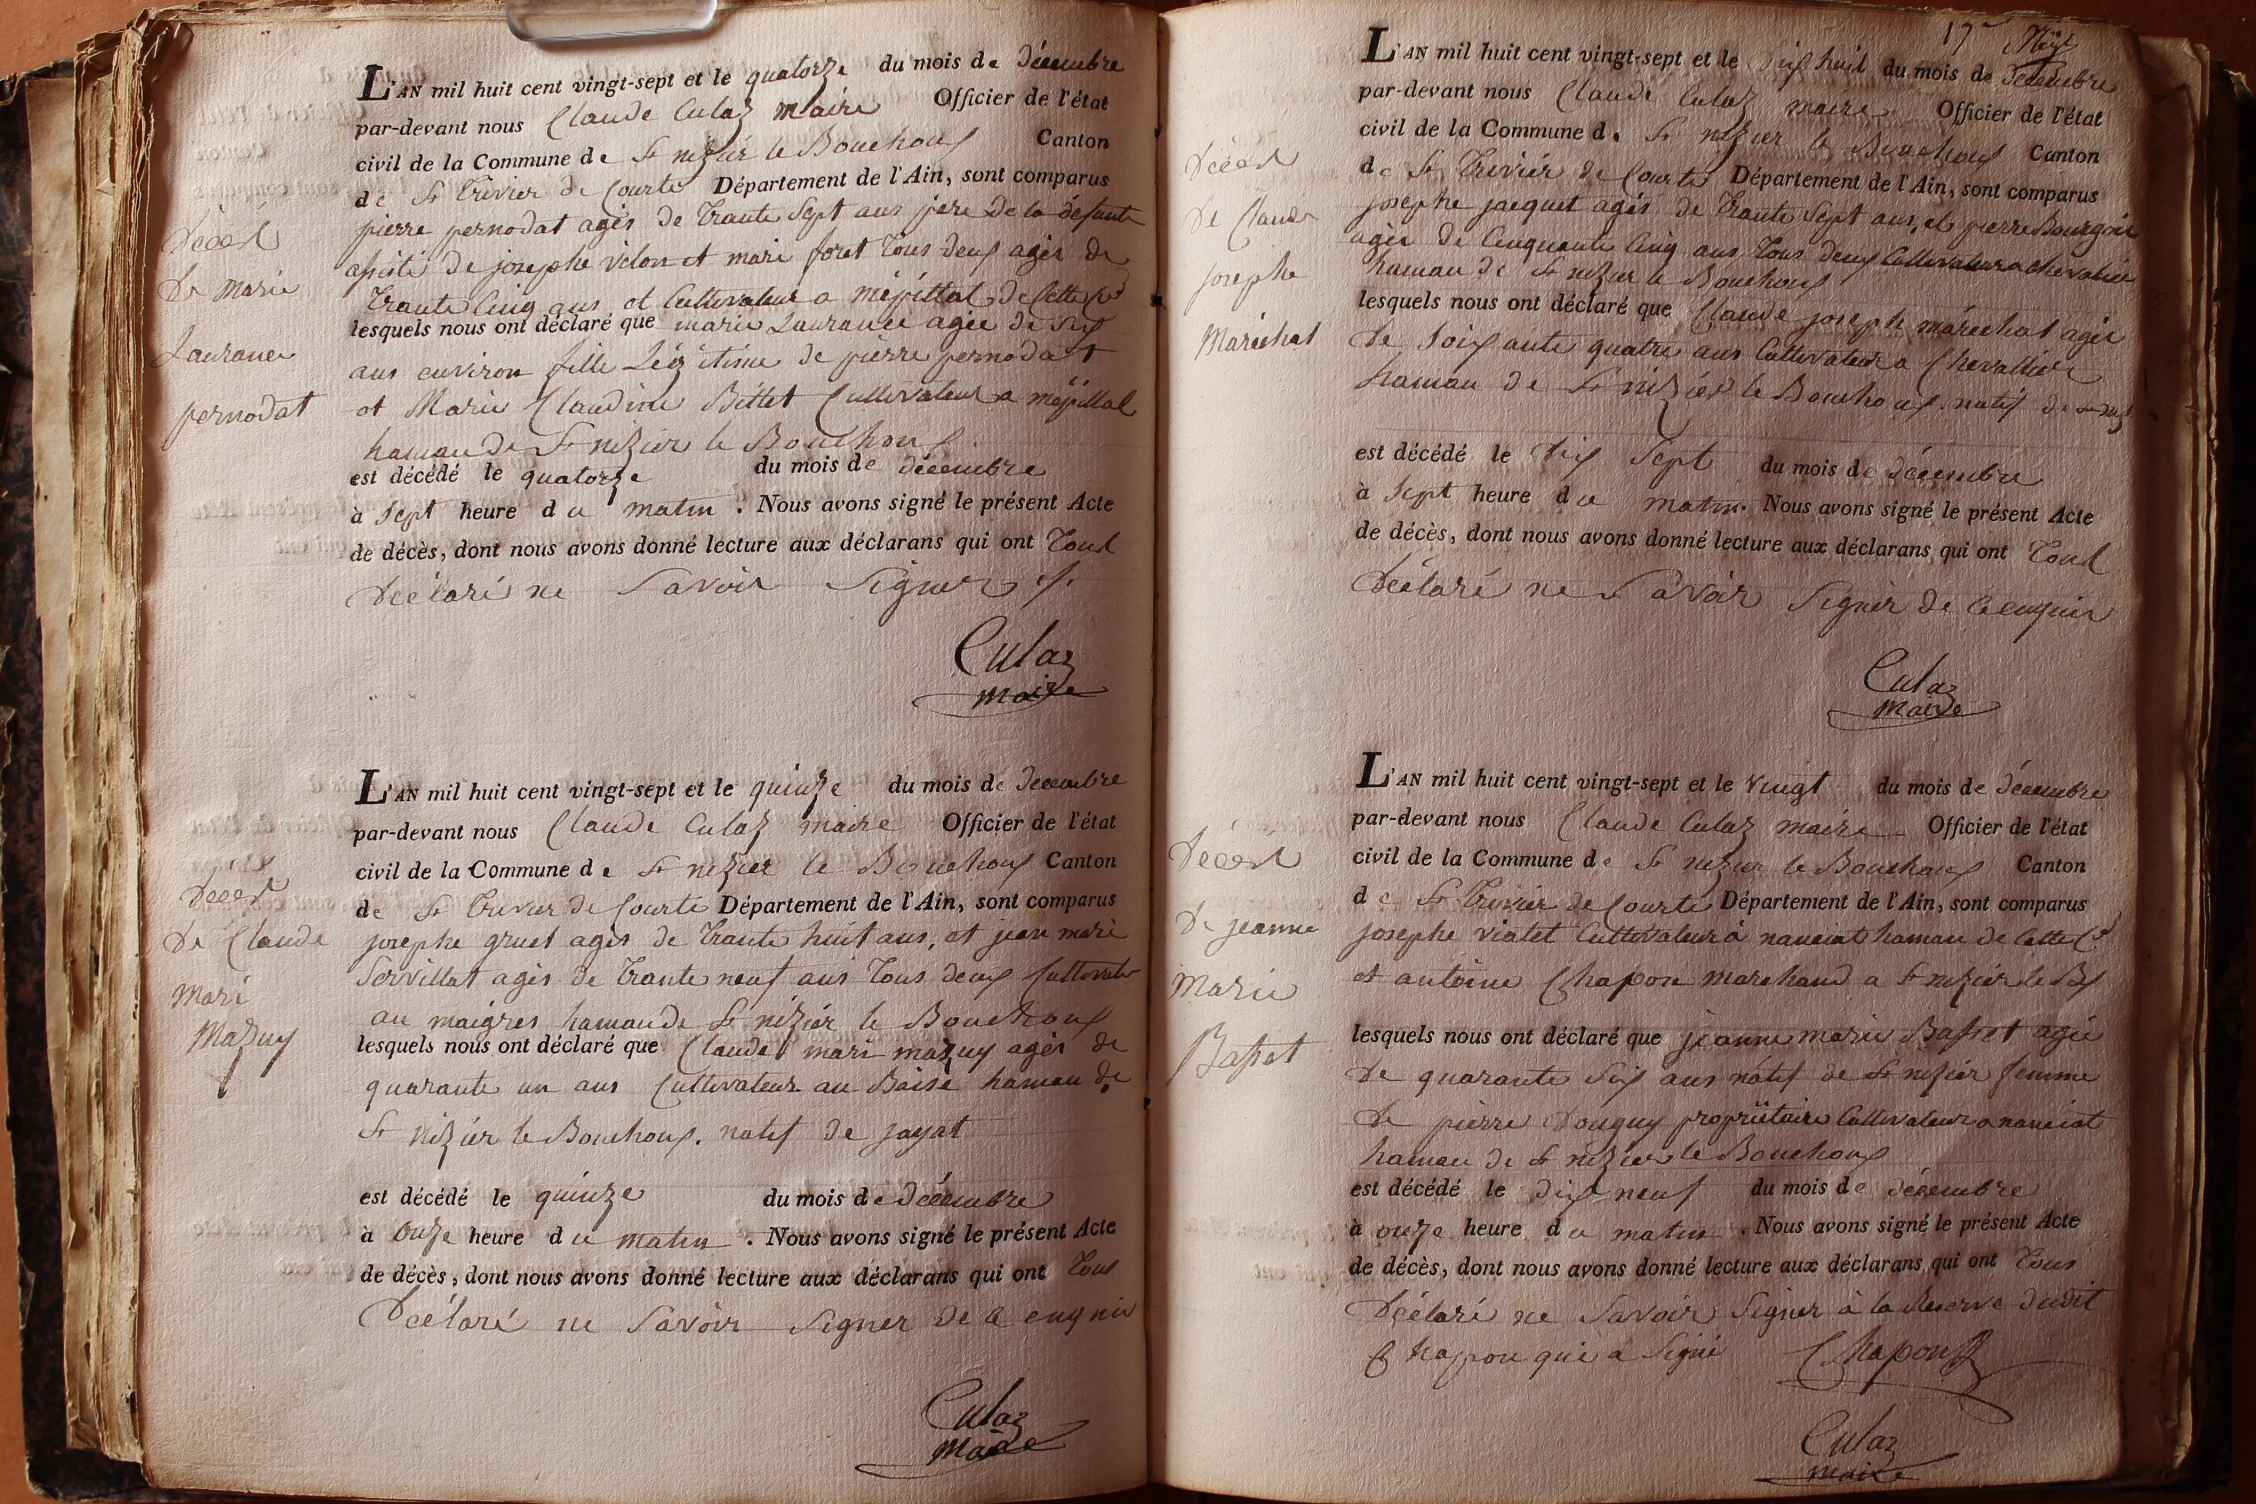 L'AN mil huit cent vingt-sept et le quatorze du mois de décembre
par-devant nous Claude Culaz maire Officier de l'état
civil de la Commune de St nizier le Bouchoux Canton
de St Trivier de Courte Département de l'Ain, sont comparus
pierre pernodat agés de Trante Sept ans père de la défunte
assisté de josephe vilon et mari foret Tous deux agés de
Trante Cinq ans et Cultivateur a mépillat de Cette Ce
lesquels nous ont déclaré que marie Laurance agée de Six
ans environ fille Légitime de pierre pernodat
et Marie Claudine Billet Cultivateur a mépillat
hamau de St nizier le Bouchoux
est décédé le quatorze du mois de décembre
à Sept heure du matin. Nous avons signé le présent Acte
de décès, dont nous avons donné lecture aux déclarans qui ont Tous
Déclaré ne Savoir Signer
Culaz
maire
Décès
De marie
Laurance
pernodat
L'AN mil huit cent vingt-sept et le quinze du mois de décembre
par-devant nous Claude Culaz maire Officier de l'état
civil de la Commune de St nizier le Bouchoux Canton
de St Trivier de Courte Département de l'Ain, sont comparus
josephe gruet agés de Trante huit ans, et jean marie
Servillat agés de Trante neuf ans Tous deux Cultivateur
au maigres hamau de St nizier le Bouchoux
lesquels nous ont déclaré que Claude mari mazuy agés de
quarante un ans Cultivateur au Baise hamau de
St nizier le Bouchoux. natif de jayat
est décédé le quinze du mois de décembre
à Onze heure du matin. Nous avons signé le présent Acte
de décès, dont nous avons donné lecture aux déclarans qui ont Tous
Déclaré ne Savoir Signer de Ce enquis
Culaz
Maire
Décès
De Claude
Mari
Mazuy
17
L'AN mil huit cent vingt-sept et le dix huit du mois de décembre
par-devant nous Claude Culaz maire Officier de l'état
civil de la Commune de St nizier le Bouchoux Canton
de St Trivier de Courte Département de l'Ain, sont comparus
josephe jacquet agés de Trante Sept ans, et pierre Bourgois
agés de Cinquante Cinq ans Tous deux Cultivateur a chevalier
hamau de St nizier le Bouchoux
lesquels nous ont déclaré que Claude joseph maréchat agés
de Soixante quatre ans Cultivateur a Chevallier
hamau de St nizier le Bouchoux. natif de
est décédé le dix Sept du mois de décembre
à Sept heure du matin. Nous avons signé le présent Acte
de décès, dont nous avons donné lecture aux déclarans qui ont Tous
Déclaré ne Savoir Signer de Ce enquis
Culaz
Maire
Décès
De Claude
josephe
Maréchat
L'AN mil huit cent vingt-sept et le vingt du mois de décembre
par-devant nous Claude Culaz maire Officier de l'état
civil de la Commune de St nizier le Bouchoux Canton
de St Trivier de Courte Département de l'Ain, sont comparus
josephe viatet Cultivateur à nanciat hamau de Cette Ce
et antoine Chapon marchand a St nizier le Bx
lesquels nous ont déclaré que jeanne marie Basset agée
de quarante Six ans natif de St nizier femme
de pierre Douguy propriïtaire Cultivateur a nanciat
hamau de St nizier le Bouchoux
est décédé le dix neuf du mois de décembre
à onze heure du matin. Nous avons signé le présent Acte
de décès, dont nous avons donné lecture aux déclarans qui ont Tous
Déclaré ne Savoir Signer à la Reserve dudit
Chapon qui à Signé Chapon
Culaz
maire
Décès
De jeanne
Marie
Basset